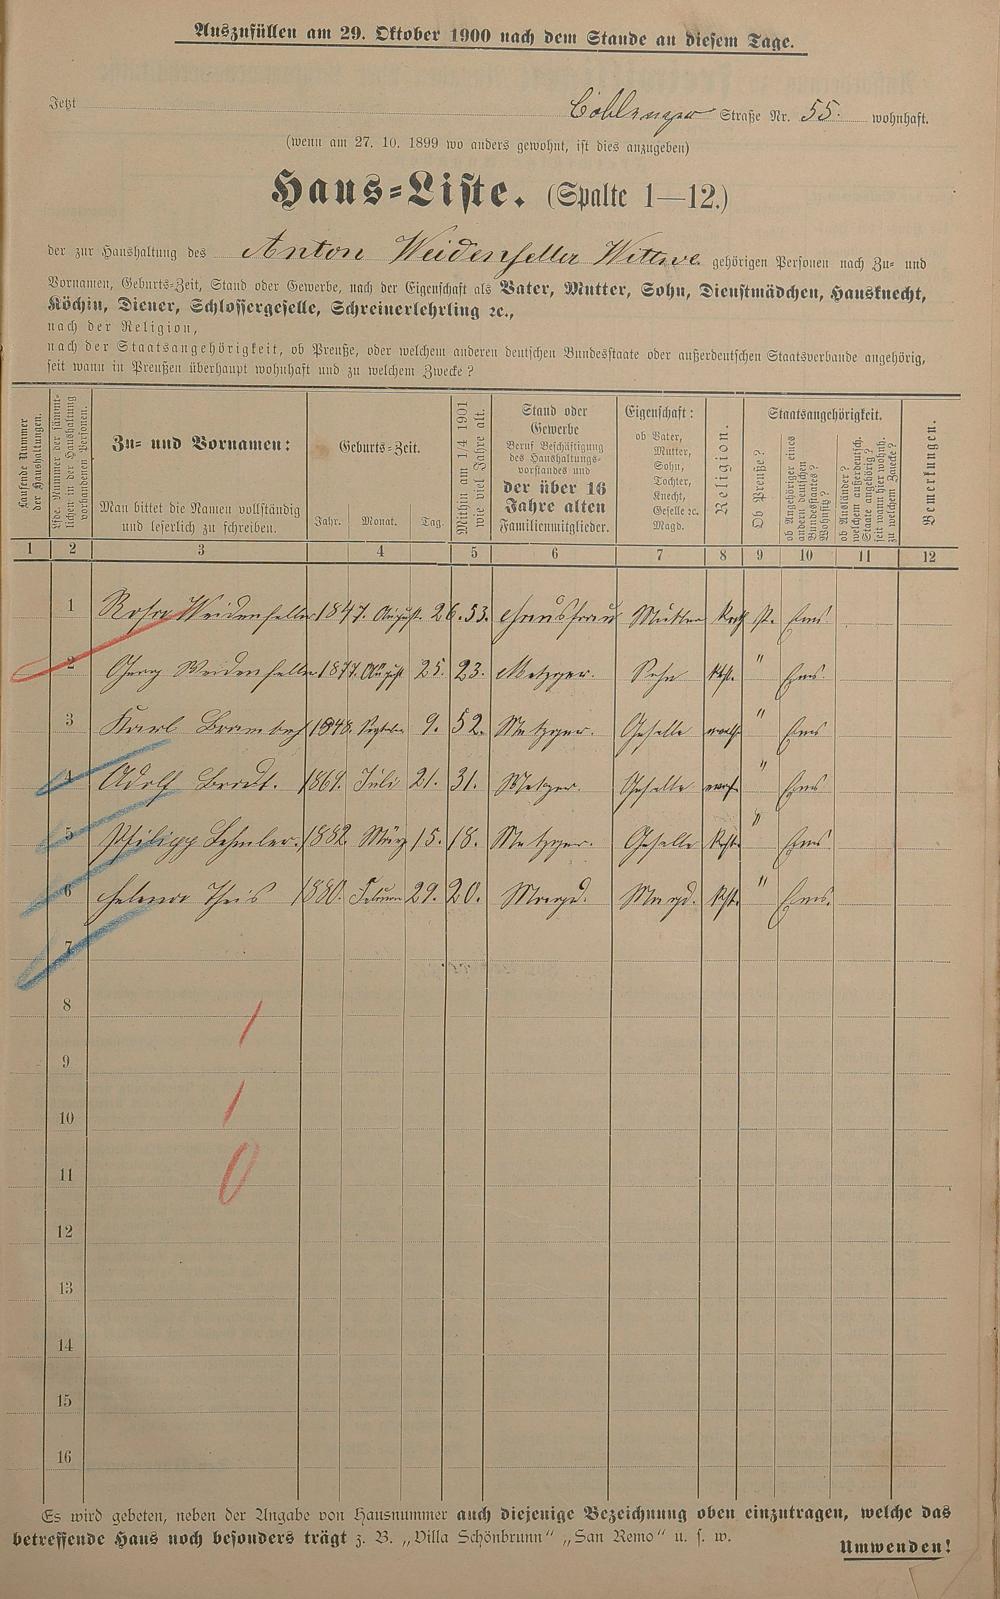 Auszufüllen am 29. Oktober 1900 nach dem Stande an diesem Tage.
Jetzt Coblenzer Straße Nr. 55. wohnhaft.
(wenn am 27. 10. 1899 wo anders gewohnt, ist dies anzugeben)
Haus-Liste. (Spalte 1—12.)
der zur Haushaltung des Anton Weidenfeller Wittwe gehörigen Personen nach Zu- und
Vornamen, Geburts-Zeit, Stand oder Gewerbe, nach der Eigenschaft als Vater, Mutter, Sohn, Dienstmädchen, Hausknecht,
Köchin, Diener, Schlossergeselle, Schreinerlehrling ꝛc.,
nach der Religion,
nach der Staatsangehörigkeit, ob Preuße, oder welchem anderen deutschen Bundesstaate oder außerdeutschen Staatsverbande angehörig,
seit wann in Preußen überhaupt wohnhaft und zu welchem Zwecke?
Laufende Nummer
der Haushaltungen.
Lfde. Nummer der sämmt-
lichen in der Haushaltung
vorhandenen Personen.
Zu- und Vornamen:
Man bittet die Namen vollständig
und leserlich zu schreiben.
Geburts-Zeit.
Jahr. Monat. Tag.
Mithin am 1/4 1901
wie viel Jahre alt.
Stand oder
Gewerbe
Beruf Beschäftigung
des Haushaltungs-
vorstandes und
der über 16
Jahre alten
Familienmitglieder.
Eigenschaft:
ob Vater,
Mutter,
Sohn,
Tochter,
Knecht,
Geselle ꝛc.
Magd.
Religion.
Staatsangehörigkeit.
Ob Preuße?
ob Angehöriger eines
andern deutschen
Bundesstaates?
Wohnsitz?
ob Ausländer?
welchem außerdeutsch.
Staate angehörig?
seit wann hier wohnh.
zu welchem Zwecke?
Bemerkungen.
1 2 3 4 5 6 7 8 9 10 11 12
1 Rosa Weidenfeller 1847. August. 26. 53. Hausfrau Mutter Kath Ems.
2 Georg Weidenfeller 1877. August 25. 23. Metzger. Sohn Kth. " Ems.
3 Karl 1848. 9. 52. Metzger. Geselle " Ems
4 Adolf Brodt. 1869. Juli 21. 31. Metzger. Geselle " Ems
5 Philipp Lehmler. 1882. März 15. 18. Metzger. Geselle Kth. " Ems
6 Helena Theis 1880. Februar 29. 20. Magd. Magd. Kth. " Ems.
7
8
1
9
10
1
11
0
12
13
14
15
16
Es wird gebeten, neben der Angabe von Hausnummer auch diejenige Bezeichnung oben einzutragen, welche das
betreffende Haus noch besonders trägt z. B. „Villa Schönbrunn“ „San Remo“ u. s. w.
Umwenden!